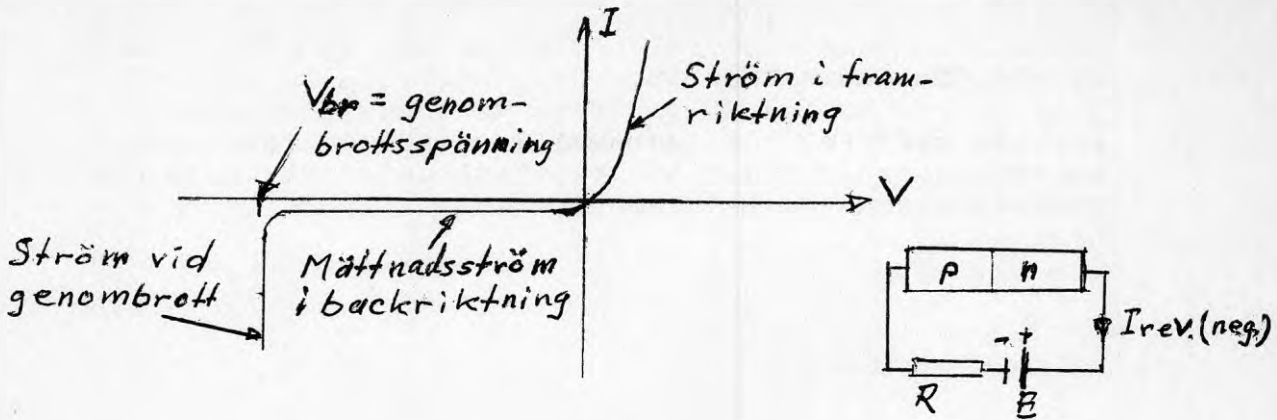 I
Ström i fram-
riktning
Vbr = genom-
brottsspänning
V
Ström vid
genombrott
Mättnadsström
i backriktning
p n
I rev. (neg.)
- +
R E